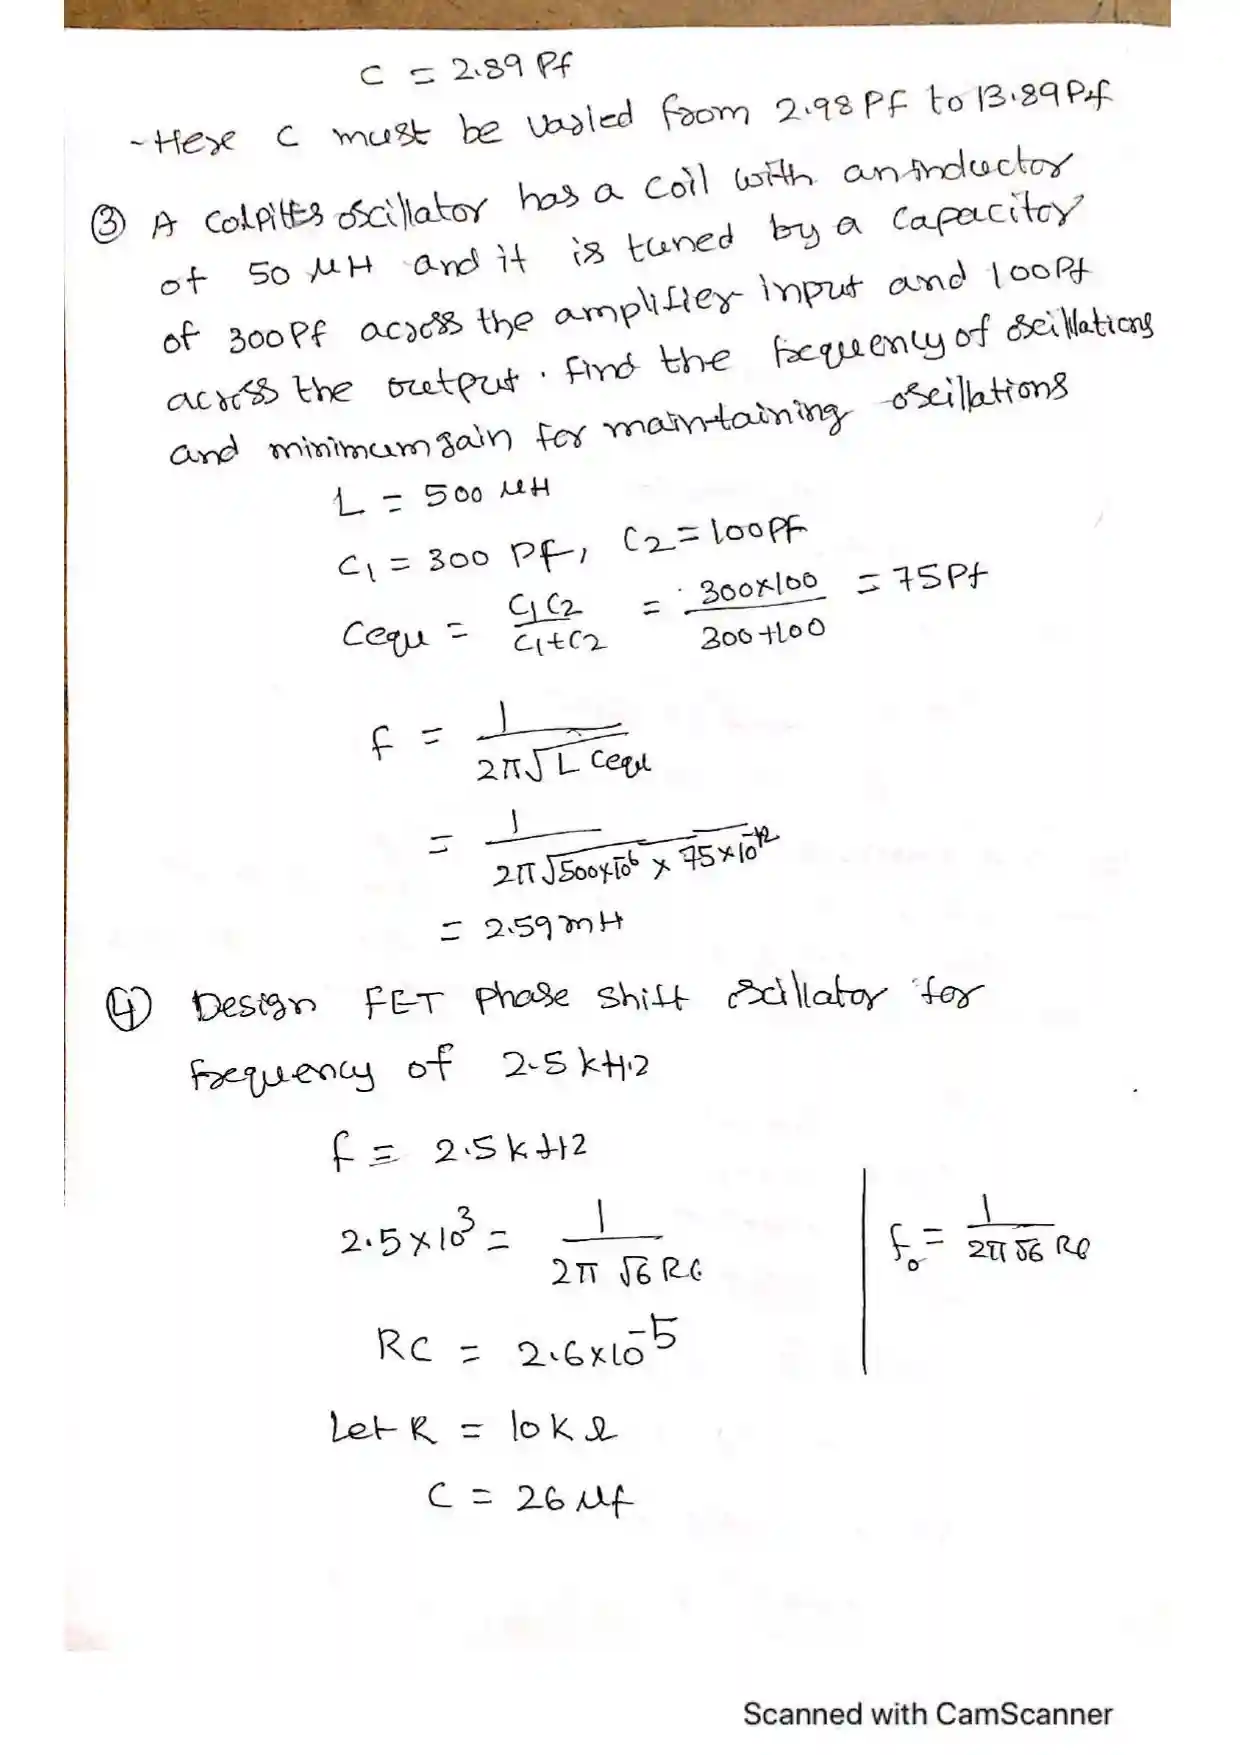 C = 2.89 Pf
- Here C must be varied from 2.98 Pf to 13.89 Pf
③ A Colpitts oscillator has a coil with an inductor
of 50 μH and it is tuned by a capacitor
of 300Pf across the amplifier input and 100Pf
across the output. find the frequency of oscillations
and minimum gain for maintaining oscillations
L = 500 μH
C1 = 300 Pf, C2 = 100Pf
Cequ = C1C2 / C1+C2 = 300×100 / 300+100 = 75Pf
f = 1 / 2π√L Cequ
= 1 / 2π√500×10^-6 × 75×10^-12
= 2.59 mH
④ Design FET Phase shift oscillator for
frequency of 2.5 kHz
f = 2.5 kHz
2.5×10^3 = 1 / 2π √6 RC | fo = 1 / 2π √6 RC
RC = 2.6×10^-5
Let R = 10K Ω
C = 26 μf
Scanned with CamScanner